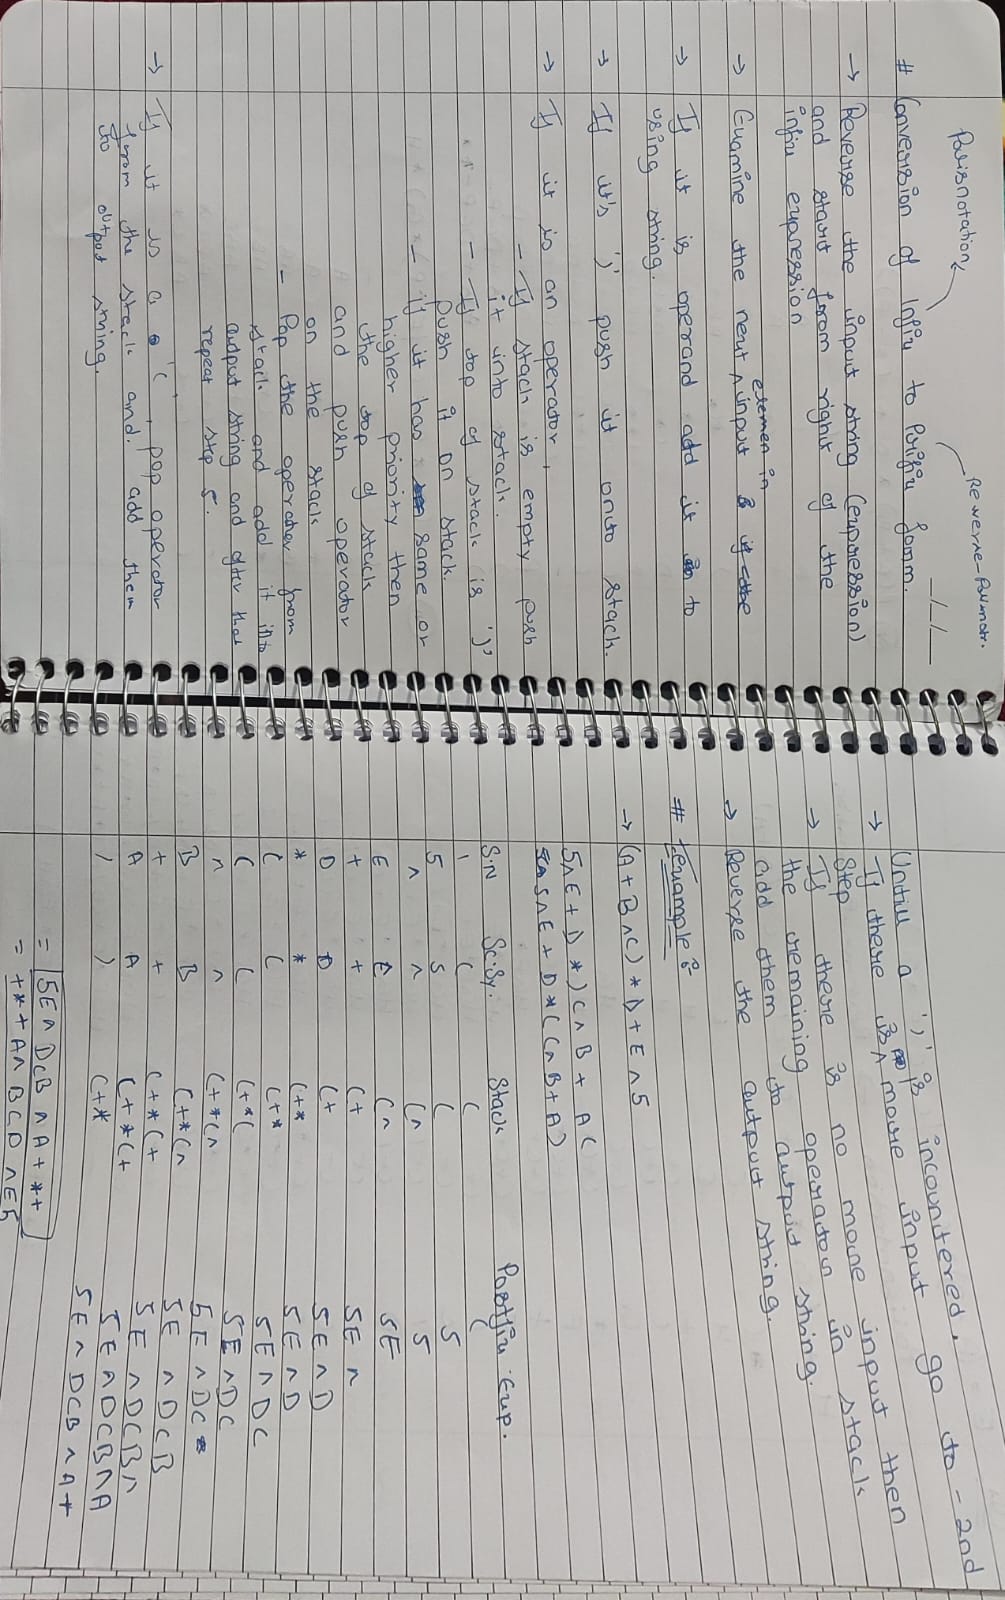 Polisnotation
Reverse-Polinotn.
# Conversion of Infix to Prifix form.
→ Reverse the input string (expression)
and start from right of the
infix expression
→ Examine the next elemen in input
→ If it is operand add it to
using string.
→ If it's ')' push it onto stack.
→ If it is an operator,
- If stack is empty push
it into stack.
- If top of stack is ')'
push it on stack.
- if it has same or
higher priority then
the top of stack
and push operator
on the stack
- Pop the operator from
stack and add it into
output string and after that
repeat step 5.
→ If it is a '(', pop operator
from the stack and add them
to output string.
Untill a ')' is incountered.
→ If there is more input go to - 2nd
Step
→ If there is no more input then
the remaining operator in stack
add them to output string.
→ Reverse the output string.
# Example :
→ (A+B∧C)*D+E∧5
5∧E+D*)C∧B+A(
5∧E+D*(C∧B+A)
S.N Sc.Sy. Stack Postfix Exp.
1 ( ( (
5 5 ( 5
∧ ∧ (∧ 5
E E (∧ 5E
+ + (+ 5E∧
D D (+ 5E∧D
* * (+* 5E∧D
C C (+* 5E∧DC
( ( (+*( 5E∧DC
∧ ∧ (+*(∧ 5E∧DC
B B (+*(∧ 5E∧DCB
+ + (+*(+ 5E∧DCB∧
A A (+*(+ 5E∧DCB∧A
) ) (+* 5E∧DCB∧A+
= 5E∧DCB∧A+*+
= +*+A∧BCD∧E5